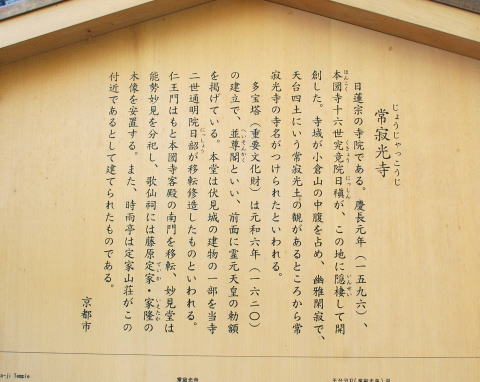 じょうじゃっこうじ
常寂光寺
日蓮宗の寺院である。慶長元年（一五九六）、
ほんこくじ くきょういん にっしん いんせい
本國寺十六世究竟院日禛が、この地に隠棲して開
創した。寺域が小倉山の中腹を占め、幽雅閑寂で、
天台四土にいう常寂光土の観があるところから常
寂光寺の寺名がつけられたといわれる。
多宝塔（重要文化財）は元和六年（一六二〇）
へいそんかく
の建立で、並尊閣といい、前面に霊元天皇の勅額
を掲げている。本堂は伏見城の建物の一部を当寺
にっしょう
二世通明院日韶が移転修造したものといわれる。
仁王門はもと本國寺客殿の南門を移転、妙見堂は
さだいえ いえたか
能勢妙見を分祀し、歌仙祠には藤原定家・家隆の
木像を安置する。また、時雨亭は定家山荘がこの
付近であるとして建てられたものである。
京都市
u-ji Temple
常寂光寺